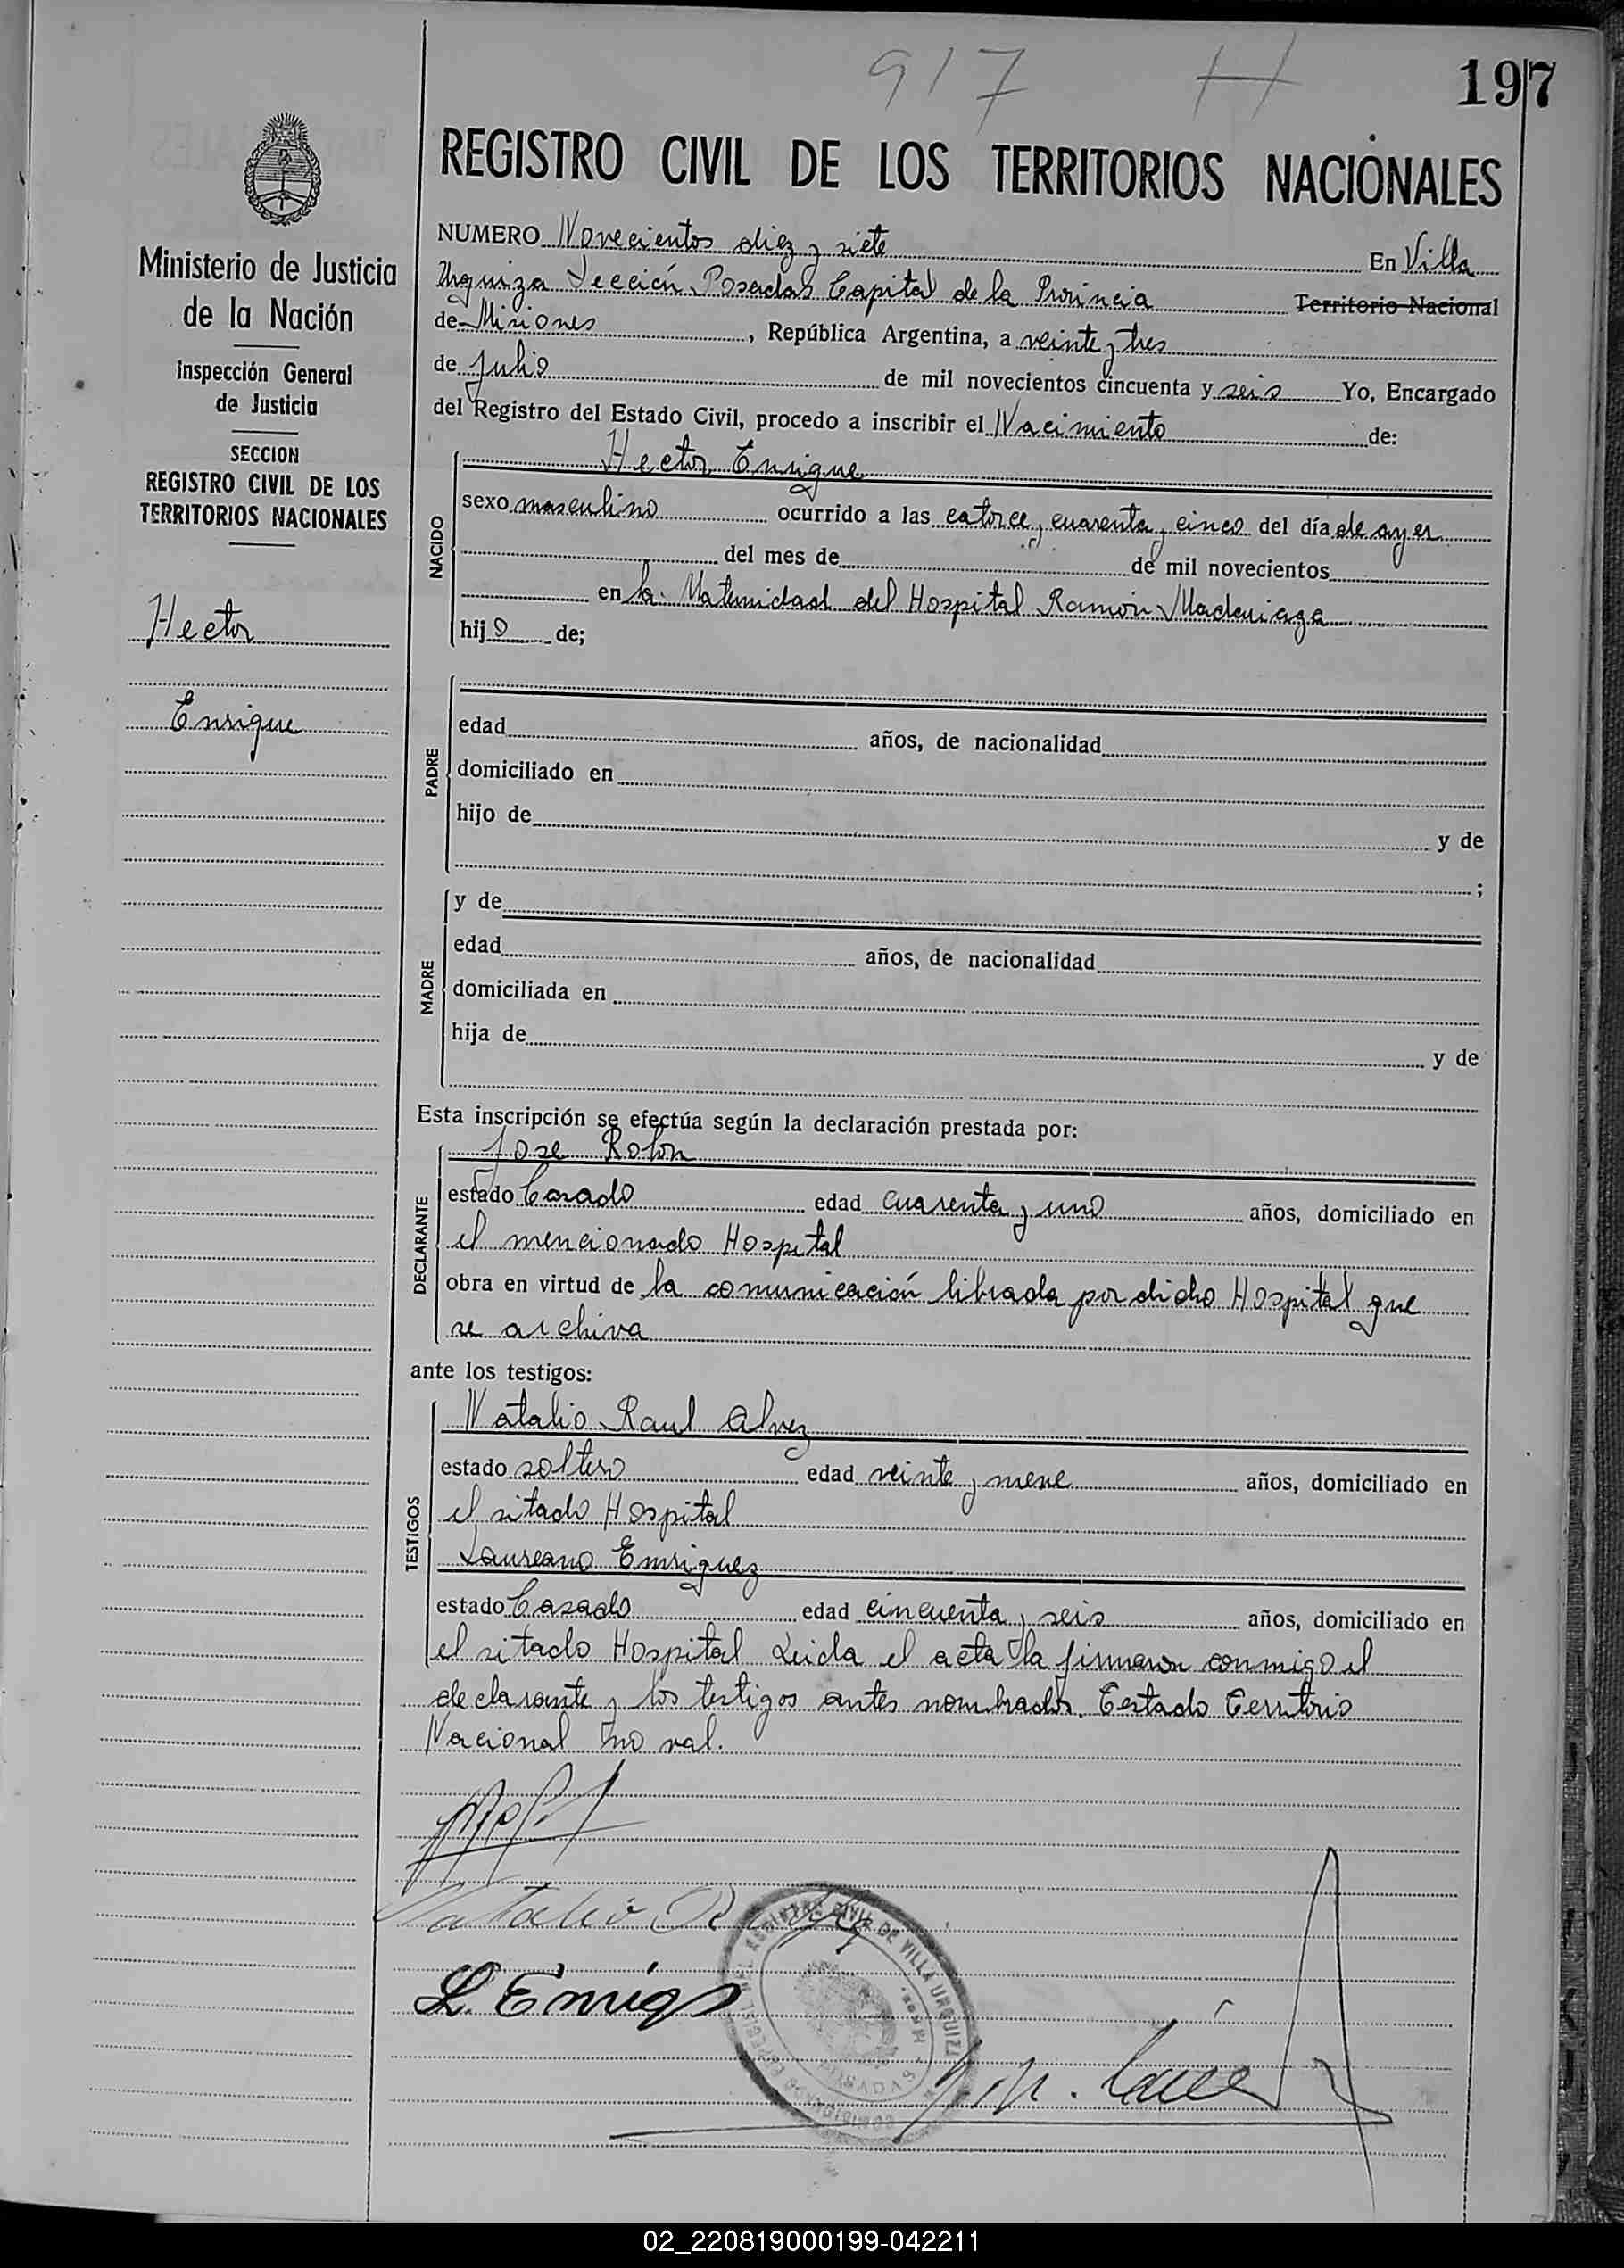 917 H
197
REGISTRO CIVIL DE LOS TERRITORIOS NACIONALES
Ministerio de Justicia
de la Nación
Inspección General
de Justicia
SECCION
REGISTRO CIVIL DE LOS
TERRITORIOS NACIONALES
Hector
Enrique
NUMERO Novecientos diez y siete En Villa
Urquiza Sección Posadas Capital de la Provincia Territorio Nacional
de Misiones, República Argentina, a veinte y tres
de Julio de mil novecientos cincuenta y seis Yo, Encargado
del Registro del Estado Civil, procedo a inscribir el Nacimiento de:
NACIDO
Hector Enrique
sexo masculino ocurrido a las catorce y cuarenta y cinco del día de ayer
del mes de de mil novecientos
en la Maternidad del Hospital Ramón Madariaga
hijo de;
PADRE
edad años, de nacionalidad
domiciliado en
hijo de y de
;
MADRE
y de
edad años, de nacionalidad
domiciliada en
hija de y de
Esta inscripción se efectúa según la declaración prestada por:
DECLARANTE
Jose Rolon
estado Casado edad cuarenta y uno años, domiciliado en
el mencionado Hospital
obra en virtud de la comunicación librada por dicho Hospital que
se archiva
ante los testigos:
TESTIGOS
Natalio Raul Alvez
estado soltero edad veinte y nueve años, domiciliado en
el sitado Hospital
Laureano Enriquez
estado Casado edad cincuenta y seis años, domiciliado en
el sitado Hospital Leida el acta la firmaron conmigo el
declarante y los testigos antes nombrados. Testado Territorio
Nacional no val.
Natalio R
L. Enriq
REGISTRO CIVIL DE VILLA URQUIZA
POSADAS
02_220819000199-042211